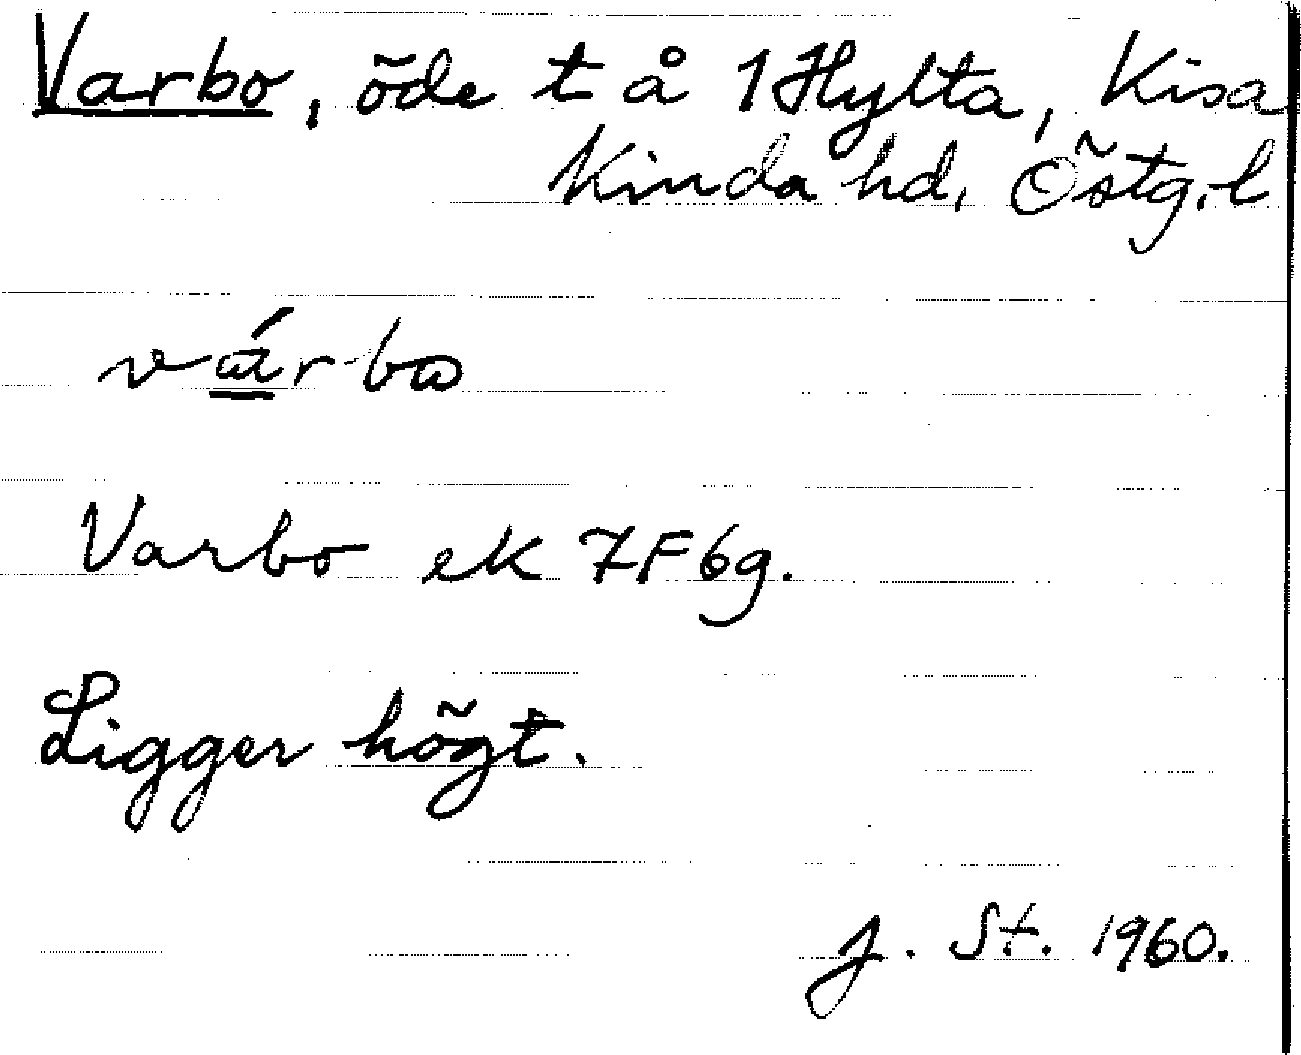 Varbo, öde t å 1 Hylta, Kisa
Kinda hd, Östg.l
vár-bω
Varbo ek 7F6g.
Ligger högt.
J. St. 1960.